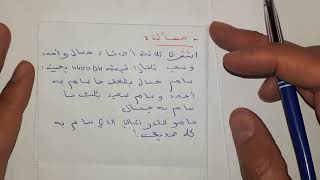 - مسألة :
اشترى ثلاثة أصدقاء جمال وأحمد
وسعيد تلفازا قيمته 4400DH بحيث :
ساهم جمال بضعف ما ساهم به
أحمد و ساهم سعيد بثلث ما
ساهم به جمال
ما هو القدر المالي الذي ساهم به
كل صديق؟